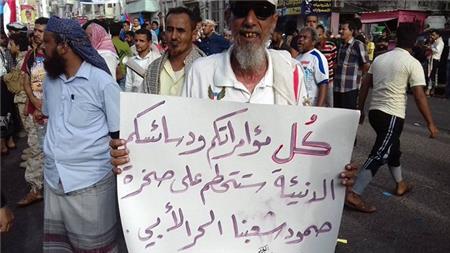 كُل مؤامراتكم ودسائسكم
الدنيئة ستتحطم على صخرة
صمود شعبنا الحر الأبي.